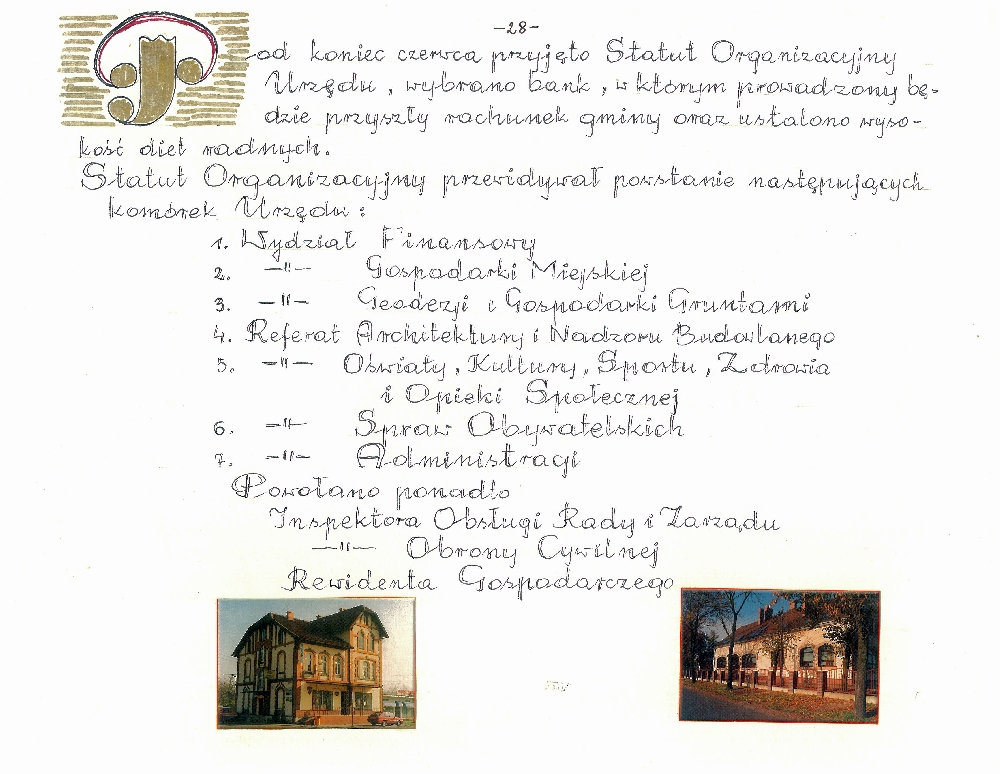 -28-
Pod koniec czerwca przyjęto Statut Organizacyjny
Urzędu, wybrano bank, w którym prowadzony bę-
dzie przyszły rachunek gminy oraz ustalono wyso-
kość diet radnych.
Statut Organizacyjny przewidywał powstanie następujących
komórek Urzędu:
1. Wydział Finansowy
2. -"- Gospodarki Miejskiej
3. -"- Geodezji i Gospodarki Gruntami
4. Referat Architektury i Nadzoru Budowlanego
5. -"- Oświaty, Kultury, Sportu, Zdrowia
i Opieki Społecznej
6. -"- Spraw Obywatelskich
7. -"- Administracji
Powołano ponadto
Inspektora Obsługi Rady i Zarządu
-"- Obrony Cywilnej
Rewidenta Gospodarczego